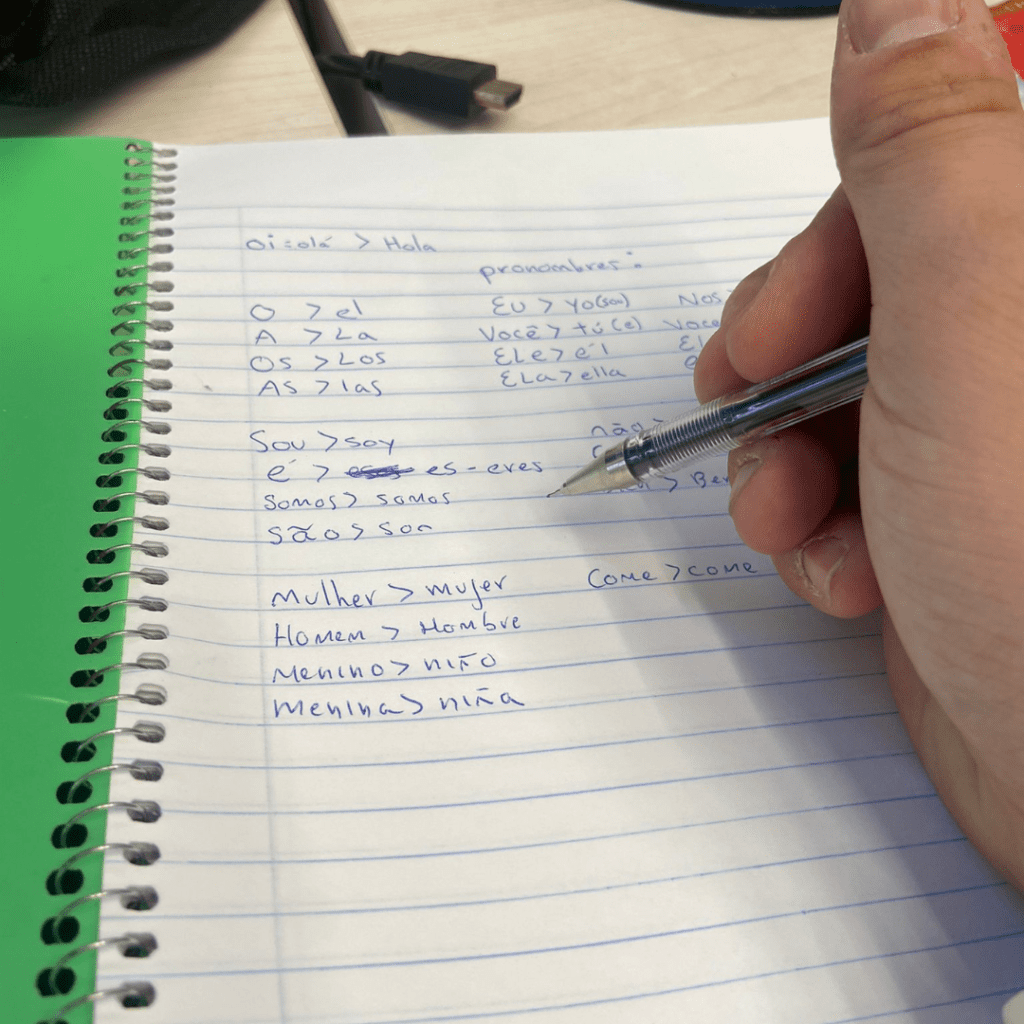 oi = olá > Hola
pronombres:
O > el
A > La
Os > Los
As > las
Eu > yo(sou)
Você > tú (é)
ELe > él
ELa > ella
Nos
Voce
El
Sou > soy
é > es - eres
Somos > somos
São > son
não
> Be
Mulher > mujer
Homem > Hombre
Menino > niño
Menina > niña
Come > come